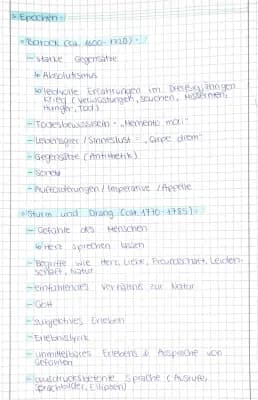 • Epochen:
• Barock (ca. 1600-1720):
- starke Gegensätze
↳ Absolutismus
↳ leidvolle Erfahrungen im Dreißigjährigen
Krieg (Verwüstungen, Seuchen, Missernten,
Hunger, Tod)
- Todesbewusstsein - „Memento mori"
- Lebensgier / Sinneslust - „Carpe diem"
- Gegensätze (Antithetik)
- Sonett
- Aufforderungen / Imperative / Appelle
• Sturm und Drang (ca. 1770-1785):
- Gefühle des Menschen
↳ Herz sprechen lassen
- Begriffe wie Herz, Liebe, Freundschaft, Leiden-
schaft, Natur
- einfühlendes Verhältnis zur Natur
- Gott
- subjektives Erleben
- Erlebnislyrik
- unmittelbares Erlebens & Aussprache von
Gefühlen
- ausdrucksbetonte Sprache (Ausrufe,
Sprachbilder, Ellipsen)